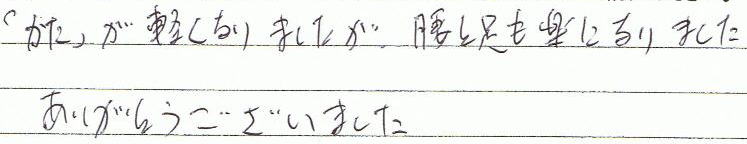 「かた」が軽くなりましたが、腰と足も楽になりました
ありがとうございました